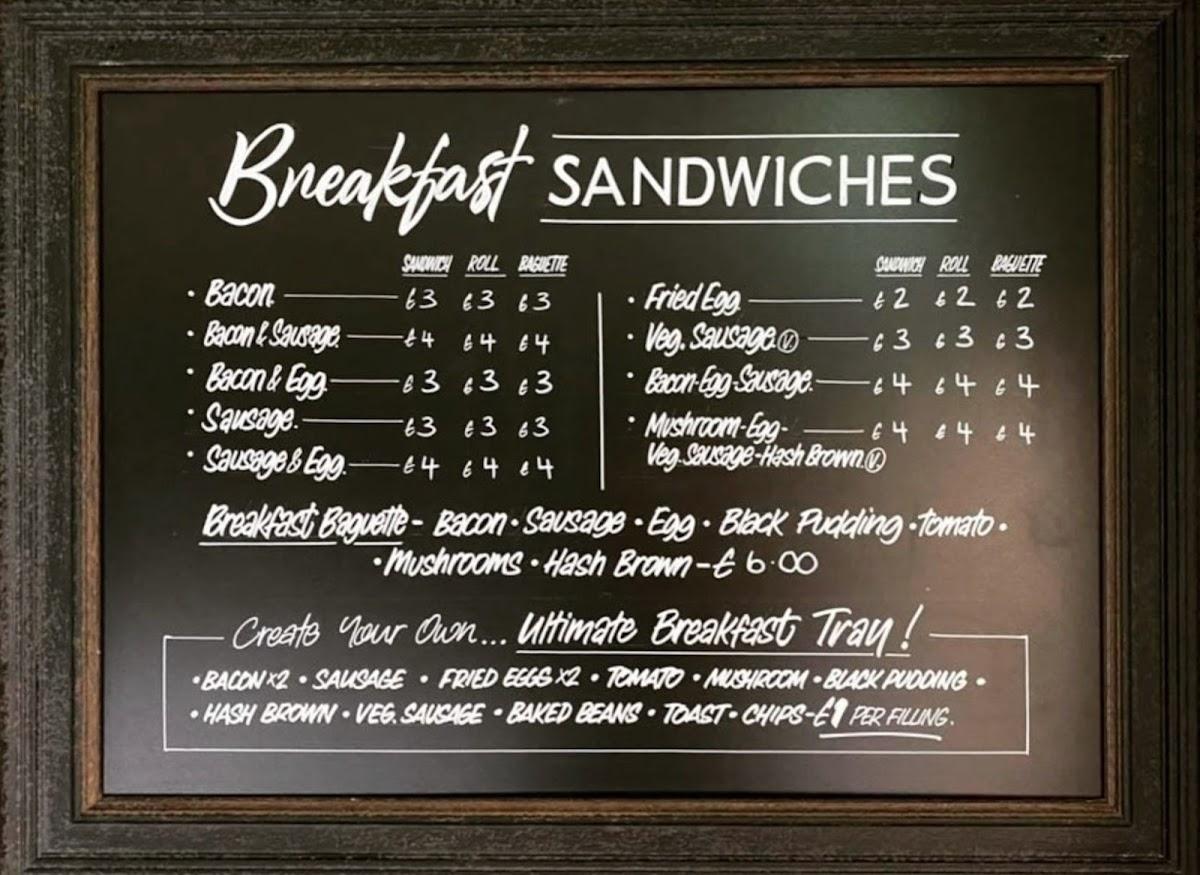 Breakfast SANDWICHES
SANDWICH ROLL BAGUETTE
• Bacon £3 £3 £3
• Bacon & Sausage. £4 £4 £4
• Bacon & Egg. £3 £3 £3
• Sausage. £3 £3 £3
• Sausage & Egg. £4 £4 £4
SANDWICH ROLL BAGUETTE
• Fried Egg. £2 £2 £2
• Veg. Sausage. Ⓥ £3 £3 £3
• Bacon-Egg-Sausage. £4 £4 £4
• Mushroom-Egg- £4 £4 £4
Veg. Sausage-Hash Brown. Ⓥ
Breakfast Baguette - Bacon • Sausage • Egg • Black Pudding • Tomato •
• Mushrooms • Hash Brown - £6.00
Create Your Own... Ultimate Breakfast Tray!
• BACON x2 • SAUSAGE • FRIED EGGS x2 • TOMATO • MUSHROOM • BLACK PUDDING •
• HASH BROWN • VEG. SAUSAGE • BAKED BEANS • TOAST • CHIPS - £1 PER FILLING.